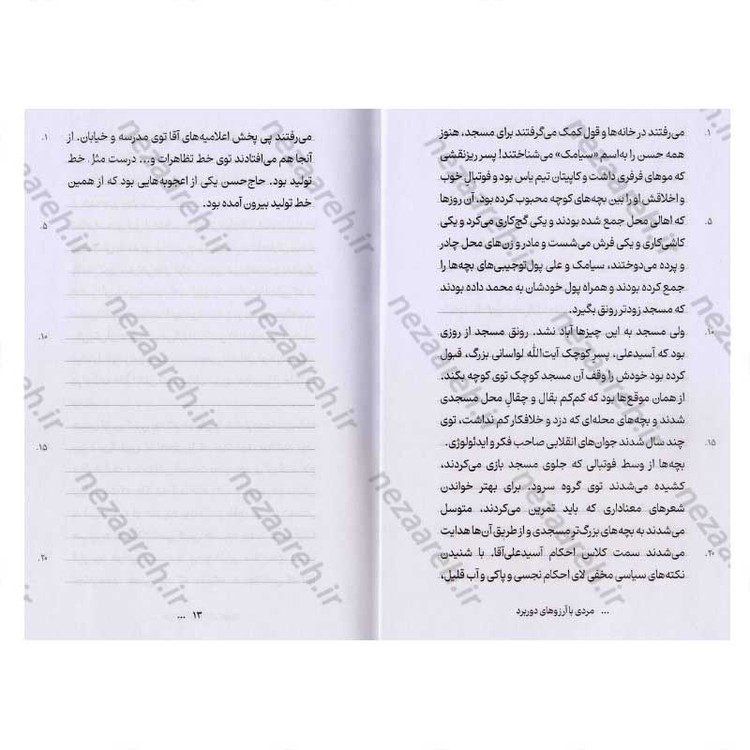 می‌رفتند در خانه‌ها و قول کمک می‌گرفتند برای مسجد، هنوز
همه حسن را به‌اسم «سیامک» می‌شناختند! پسر ریزنقشی
که موهای فرفری داشت و کاپیتان تیم یاس بود و فوتبال خوب
و اخلاقش او را بین بچه‌های کوچه محبوب کرده بود. آن روزها
که اهالی محل جمع شده بودند و یکی گچ‌کاری می‌کرد و یکی
کاشی‌کاری و یکی فرش می‌شست و مادر و زن‌های محل چادر
و پرده می‌دوختند، سیامک و علی پول‌توجیبی‌های بچه‌ها را
جمع کرده بودند و همراه پول خودشان به محمد داده بودند
که مسجد زودتر رونق بگیرد.
ولی مسجد به این چیزها آباد نشد. رونق مسجد از روزی
بود که آسیدعلی، پسر کوچک آیت‌الله لواسانی بزرگ، قبول
کرده بود خودش را وقف آن مسجد کوچک توی کوچه بکند.
از همان موقع‌ها بود که کم‌کم بقال و چقال محل مسجدی
شدند و بچه‌های محله‌ای که دزد و خلافکار کم نداشت، توی
چند سال شدند جوان‌های انقلابی صاحب فکر و ایدئولوژی.
بچه‌ها از وسط فوتبالی که جلوی مسجد بازی می‌کردند،
کشیده می‌شدند توی گروه سرود. برای بهتر خواندن
شعرهای معناداری که باید تمرین می‌کردند، متوسل
می‌شدند به بچه‌های بزرگ‌تر مسجدی و از طریق آن‌ها هدایت
می‌شدند سمت کلاس احکام آسیدعلی‌آقا. با شنیدن
نکته‌های سیاسی مخفی لای احکام نجسی و پاکی و آب قلیل،
۱.
۵.
۱۰.
۱۵.
۲۰.
... مردی با آرزوهای دوربرد
می‌رفتند پی پخش اعلامیه‌های آقا توی مدرسه و خیابان. از
آنجا هم می‌افتادند توی خط تظاهرات و... درست مثل خط
تولید بود. حاج‌حسن یکی از اعجوبه‌هایی بود که از همین
خط تولید بیرون آمده بود.
۱.
۵.
۱۰.
۱۵.
۲۰.
۱۳ ...
nezaareh.ir